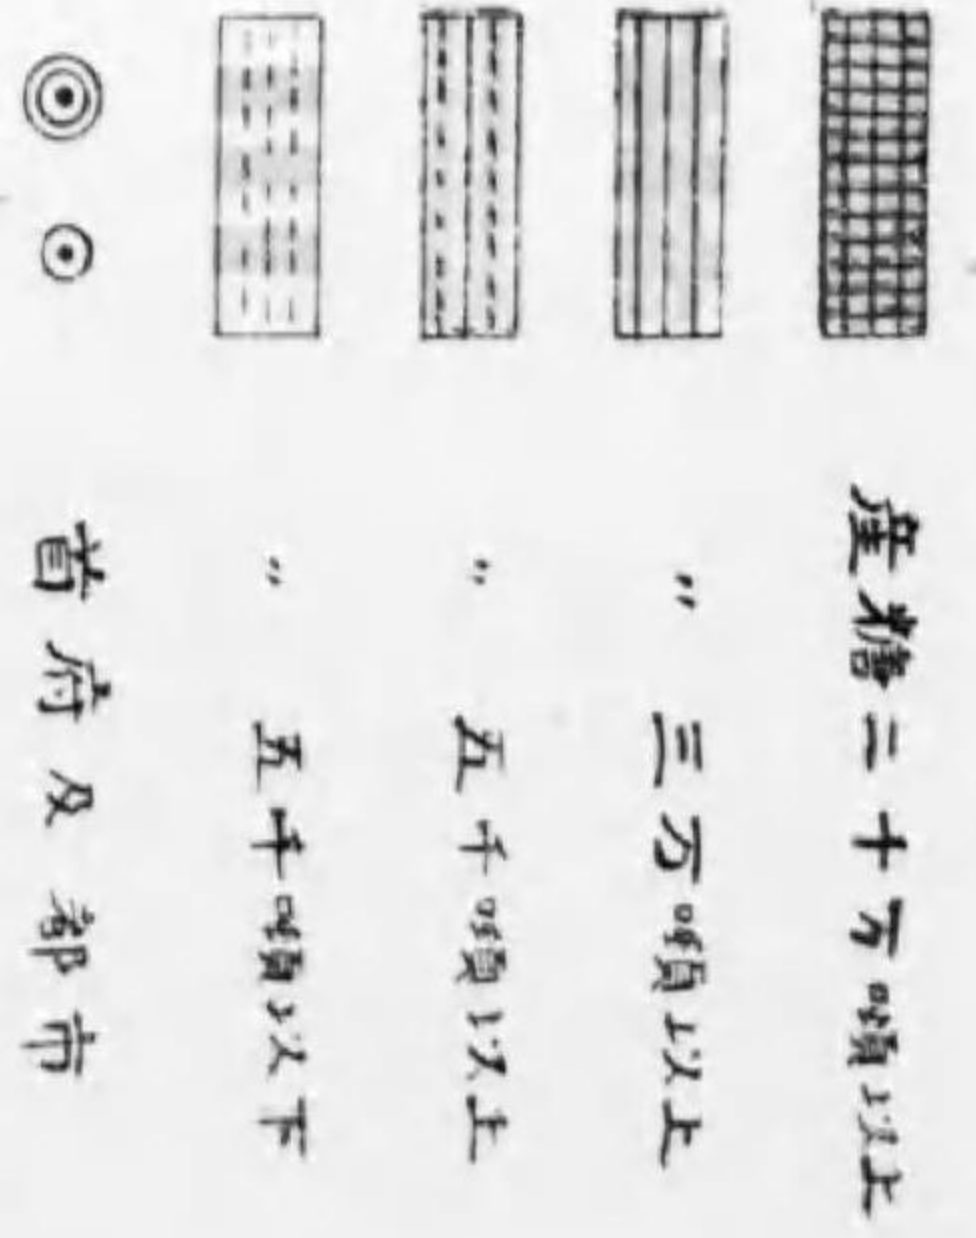 産糖二十万噸以上
〃 三万噸以上
〃 五千噸以上
〃 五千噸以下
首府及都市